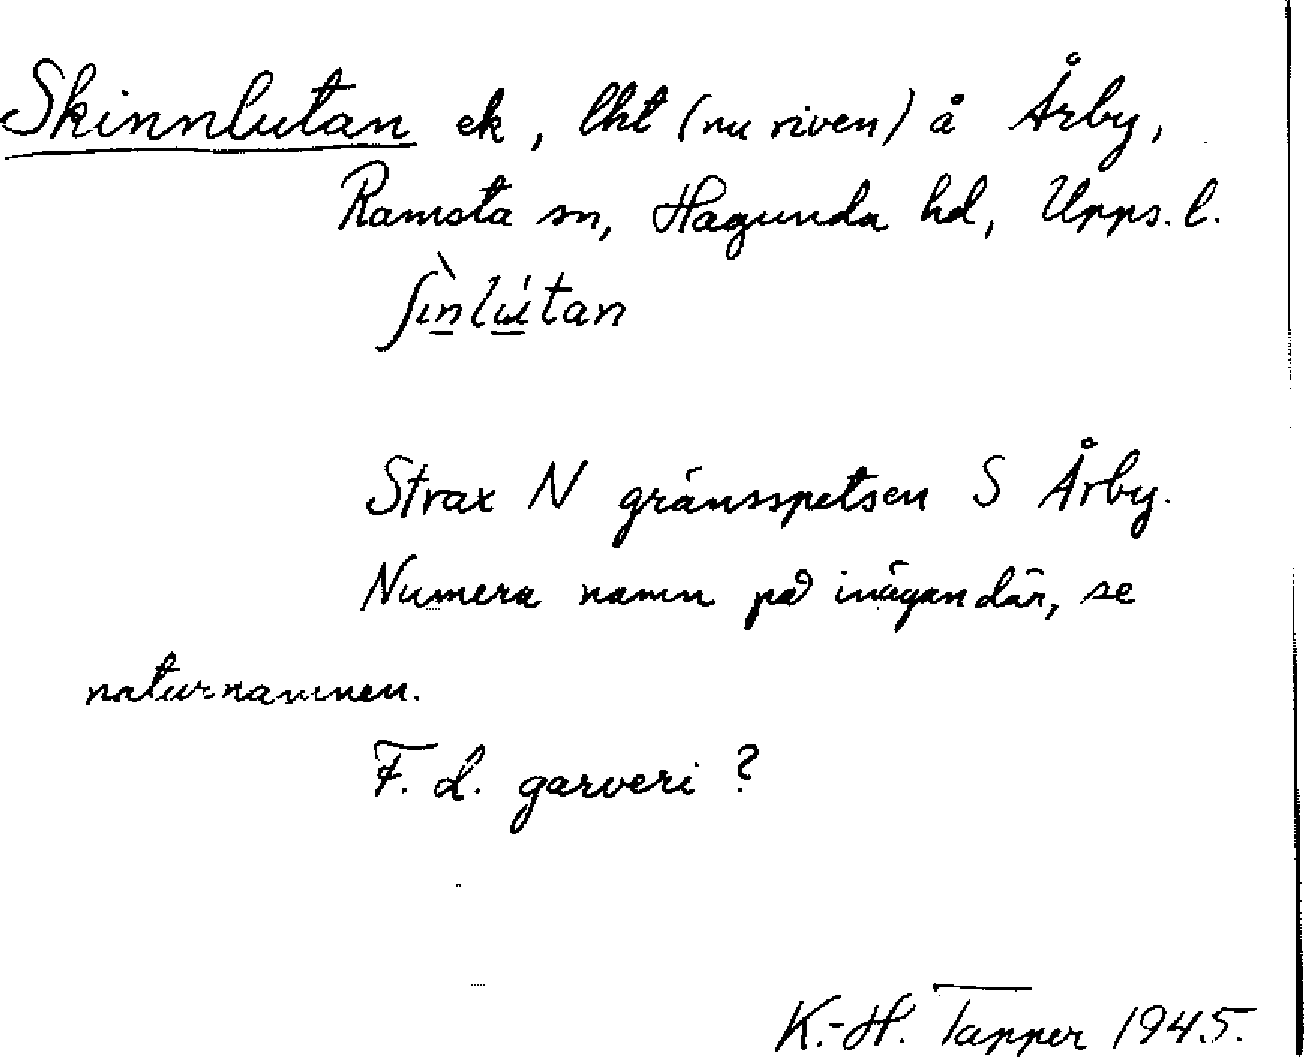 Skinnlutan ek, lht (nu riven) å Årby,
Ramsta sn, Hagunda hd, Upps. l.
ʃìnlútan
Strax N gränsspetsen S Årby.
Numera namn på inägan där, se
naturnamnen.
F. d. garveri?
K.-H. Tapper 1945.